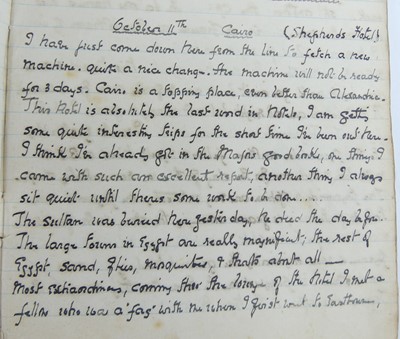 October 11th Cairo (Shepherds Hotel)
I have just come down here from the line to fetch a new
machine. quite a nice change. the machine will not be ready
for 3 days. Cairo is a topping place, even better than Alexandria.
This Hotel is absolutely the last word in Hotels, I am getting
some quite interesting trips for the short time I've been out here.
I think I've already got in the Majors good books, one thing I
came with such an excellent report, another thing I always
sit quiet until theres some work to be done....
The Sultan was buried here yesterday, he died the day before.
The large towns in Egypt are really magnificent; the rest of
Egypt, sand, flies, mosquitoes, & thats about all —
Most extraordinary, coming thro' the lounge of the Hotel I met a
fellow who was a "fag" with me when I first went to Eastbourne,